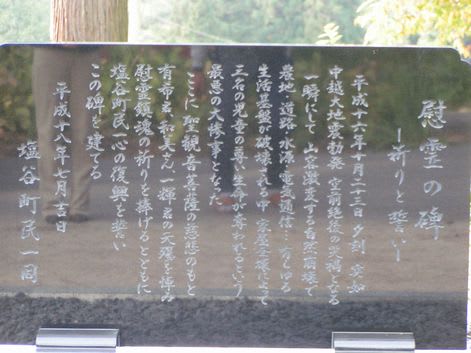 慰霊の碑
―祈りと誓い―
平成十六年十月二十三日夕刻 突如
中越大地震勃発 空前絶後の天禍である
一瞬にして 山容激変する自然崩壊で
農地 道路 水源 電気通信 あらゆる
生活基盤が破壊された中 家屋全壊によって
三名の児童の尊い生命が奪われるという
最悪の大惨事となった
ここに聖観音菩薩の慈悲のもと
有希名 和美さん 一輝君の天殤を悼み
慰霊鎮魂の祈りを捧げるとともに
塩谷町民一心の復興を誓い
この碑を建てる
平成十八年七月吉日
塩谷町民一同